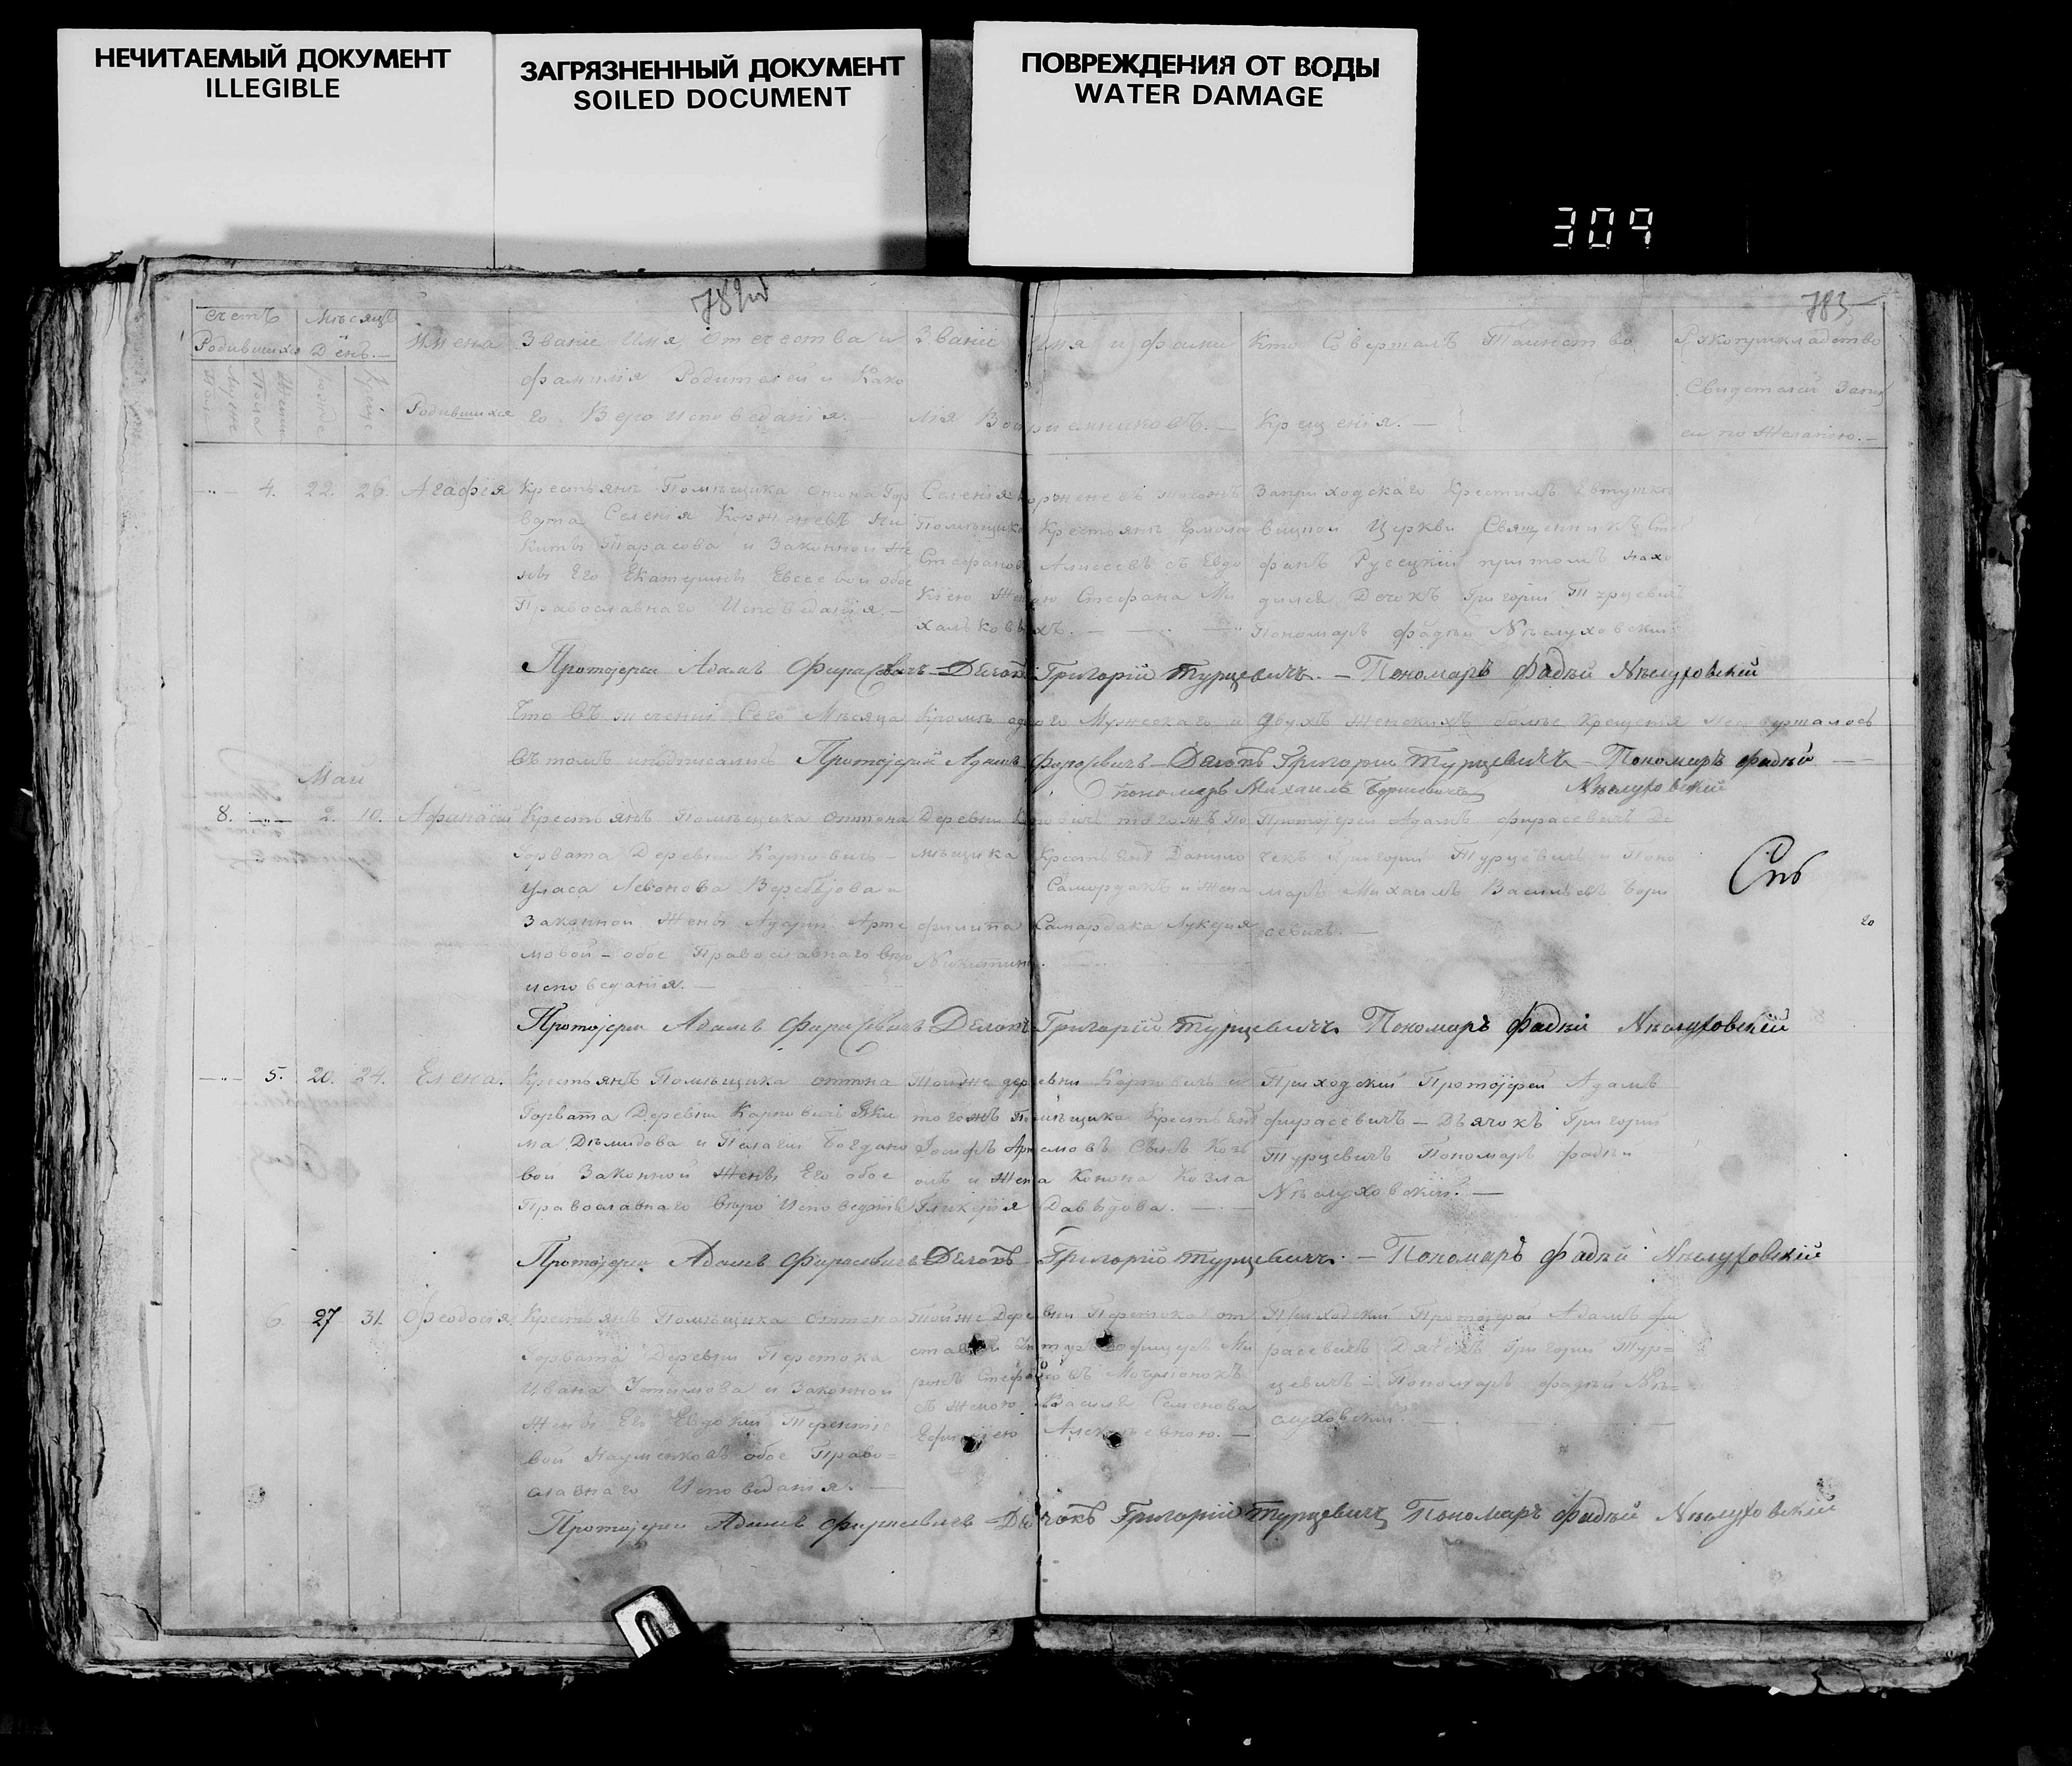 НЕЧИТАЕМЫЙ ДОКУМЕНТ
ILLEGIBLE
ЗАГРЯЗНЕННЫЙ ДОКУМЕНТ
SOILED DOCUMENT
ПОВРЕЖДЕНИЯ ОТ ВОДЫ
WATER DAMAGE
309
783
счетъ
Родившихся
Мѣсяцъ
День.—
Имена
Родившихся
Званіе Имя, Отечества и
фамилія Родителей и Како
го Веро Исповеданія.—
Званіе Имя и фами
лія Воспріемниковъ.—
Кто Совершалъ Таинство
Крещенія.—
Рукоприкладство
Свидетелей Запи
си по Желанію.—
4. 22. 26. Агафія
Крестьянъ Помѣщика Отона Гор
вата Селенія Корженевъ Ни
киты Тарасова и Законной Же
ны Его Екатерины Евсеевой обое
Православнаго Исповеданія.—
Помѣщика Крестьянъ Ермола
Стефановъ Алисеевъ съ Евдо
кіею Женою Стефана Ми
хальковыхъ.—
Заприходскаго Крестилъ Евтушко
вицкой Церкви Священникъ Сте
фанъ Русецкій притомъ нахо
дился Дечокъ Григорій Турцевичъ
Пономаръ фадѣй Нѣслуховскій
Протоіерей Адамъ Фирасевичъ—Дечокъ Григорій Турцевичъ.—Пономаръ Фадѣй Нѣслуховскій
Что въ теченіи Сего Мѣсяца Кромѣ одного Мужескаго и двухъ Женскихъ болѣе Крещенія Несовершалось
въ томъ и подписались Протоіерей Адамъ Фирасевичъ—Дечокъ Григорій Турцевичъ—Пономаръ фадѣй
Нѣслуховскій
пономаръ Михаилъ Борисевичъ
Май
8. 2. 10. Афанасій
Крестьянъ Помѣщика Оттона
Горвата Деревни Карповичъ—
Уласа Левонова Веребьіова и
Законной Жены Адаріи Арте
мовой—обое Православнаго вѣро
исповеданія.—
мѣщика Крестьянъ Данило
Самордакъ и Жена
филипа Самардака Лукерія
Протоіерей Адамъ фирасевичъ Де
чекъ Григорій Турцевичъ и Поно
маръ Михаилъ Васильевъ Бори
севичъ.—
20
Протоіерей Адамъ Фирасевичъ Дечокъ Григорій Турцевичъ Пономаръ Фадѣй Нѣслуховскій
5. 20. 24. Елена.
Крестьянъ Помѣщика Оттона
Горвата Деревни Карповичъ Яки
ма Дѣмидова и Пелагеи Богдано
вой Законной Жены Его обое
Православнаго Вѣро Исповеданія
Тойже деревни Карповичъ и
тогожъ Помѣщика Крестьянъ
Іосифъ Артемовъ Сынъ Козь
олъ и Жена Конона Козла
Гликерія Давыдова.—
Приходскій Протоіерей Адамъ
фирасевичъ—Дьячокъ Григорій
Турцевичъ Пономаръ фадѣй
Нѣслуховскій.—
Протоіерей Адамъ Фирасевичъ Дечокъ Григорій Турцевичъ.—Пономаръ Фадѣй Нѣслуховскій
6. 27 31. Феодосія.
Крестьянъ Помѣщика Оттона
Горвата Деревни Перетока
Ивана Устимова и Законной
Жены Его Евдокіи Терентіе
вой Науменковъ обое Право=
славнаго Исповеданія.—
Тойже Деревни Перетока от
ставной Унтеръ офицеръ Ми
ронъ Стефановъ
съ Женою Василя Семенова
Алексѣевною.—
Приходскій Протоіерей Адамъ фи
расевичъ Дячекъ Григорій Тур=
цевичъ—Пономаръ фадѣй Нѣ=
слуховскій.—
Протоіерей Адамъ Фирасевичъ—Дечокъ Григорій Турцевичъ Пономаръ Фадѣй Нѣслуховскій